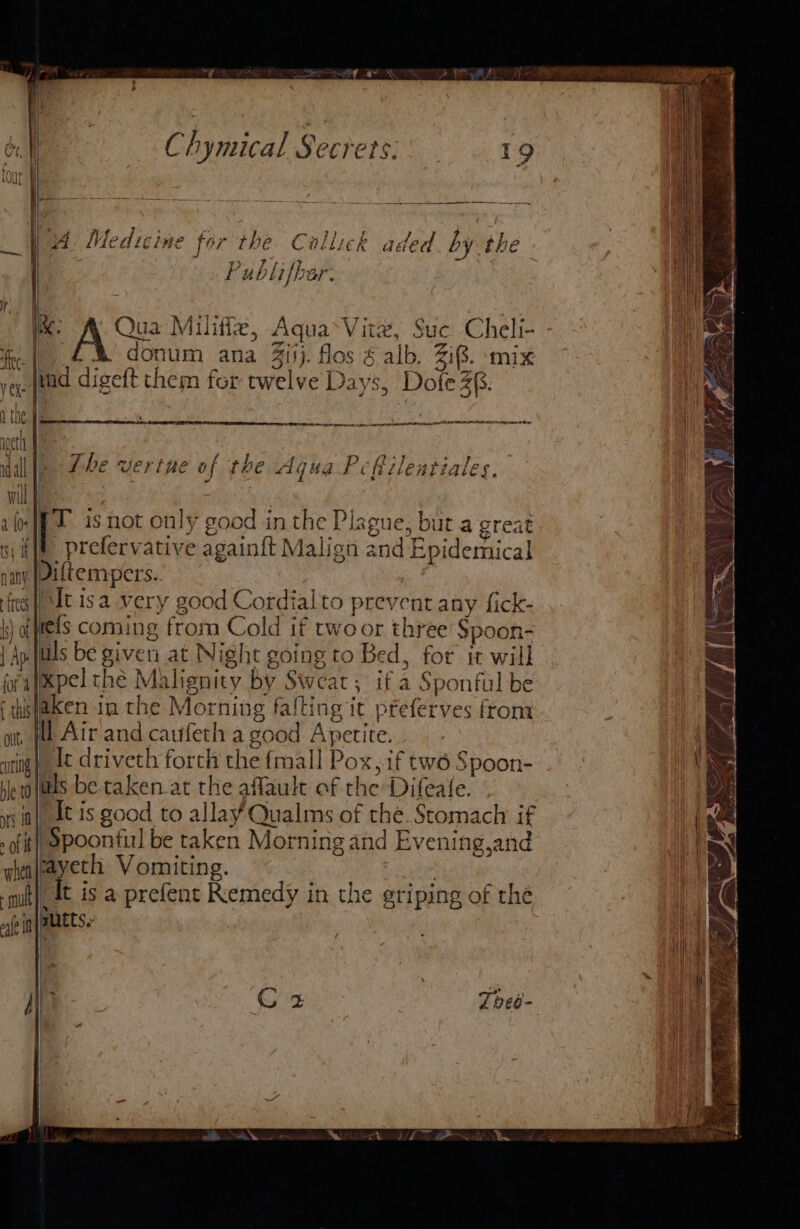 Chymical Secrets. 19
A Medicine for the Collick aded by the
Publiſhar.
℞: AQua Miliſſæ, Aqua Vitæ, Suc Cheli-
donum ana ℥iij. flos & alb. ℥iß. mix
and digeſt them for twelve Days, Doſe ℥ß.
The vertue of the Aqua Peſtilentiales.
IT is not only good in the Plague, but a great
preſervative againſt Malign and Epidemical
Diſtempers.
It is a very good Cordial to prevent any ſick-
neſs coming from Cold if two or three Spoon-
fuls be given at Night going to Bed, for it will
expel the Malignity by Sweat; if a Sponful be
taken in the Morning faſting it preſerves from
ill Air and cauſeth a good Apetite.
It driveth forth the ſmall Pox, if two Spoon-
fuls be taken at the aſſault of the Diſeaſe.
It is good to allay Qualms of the Stomach if
Spoonful be taken Morning and Evening, and
ſtayeth Vomiting.
It is a preſent Remedy in the griping of the
Gutts.
C 2